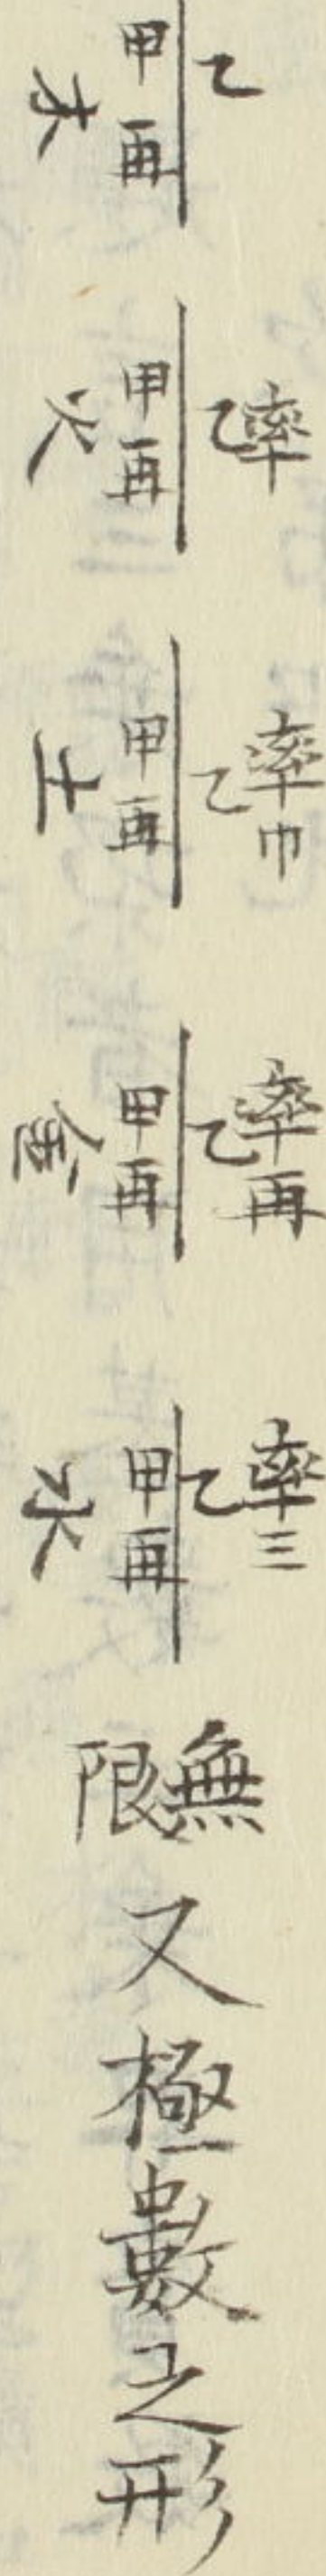 乙
甲再
木
率
乙
甲再
火
率巾
乙
甲再
土
率再
乙
甲再
金
率三
乙
甲再
水
無限又極數之形